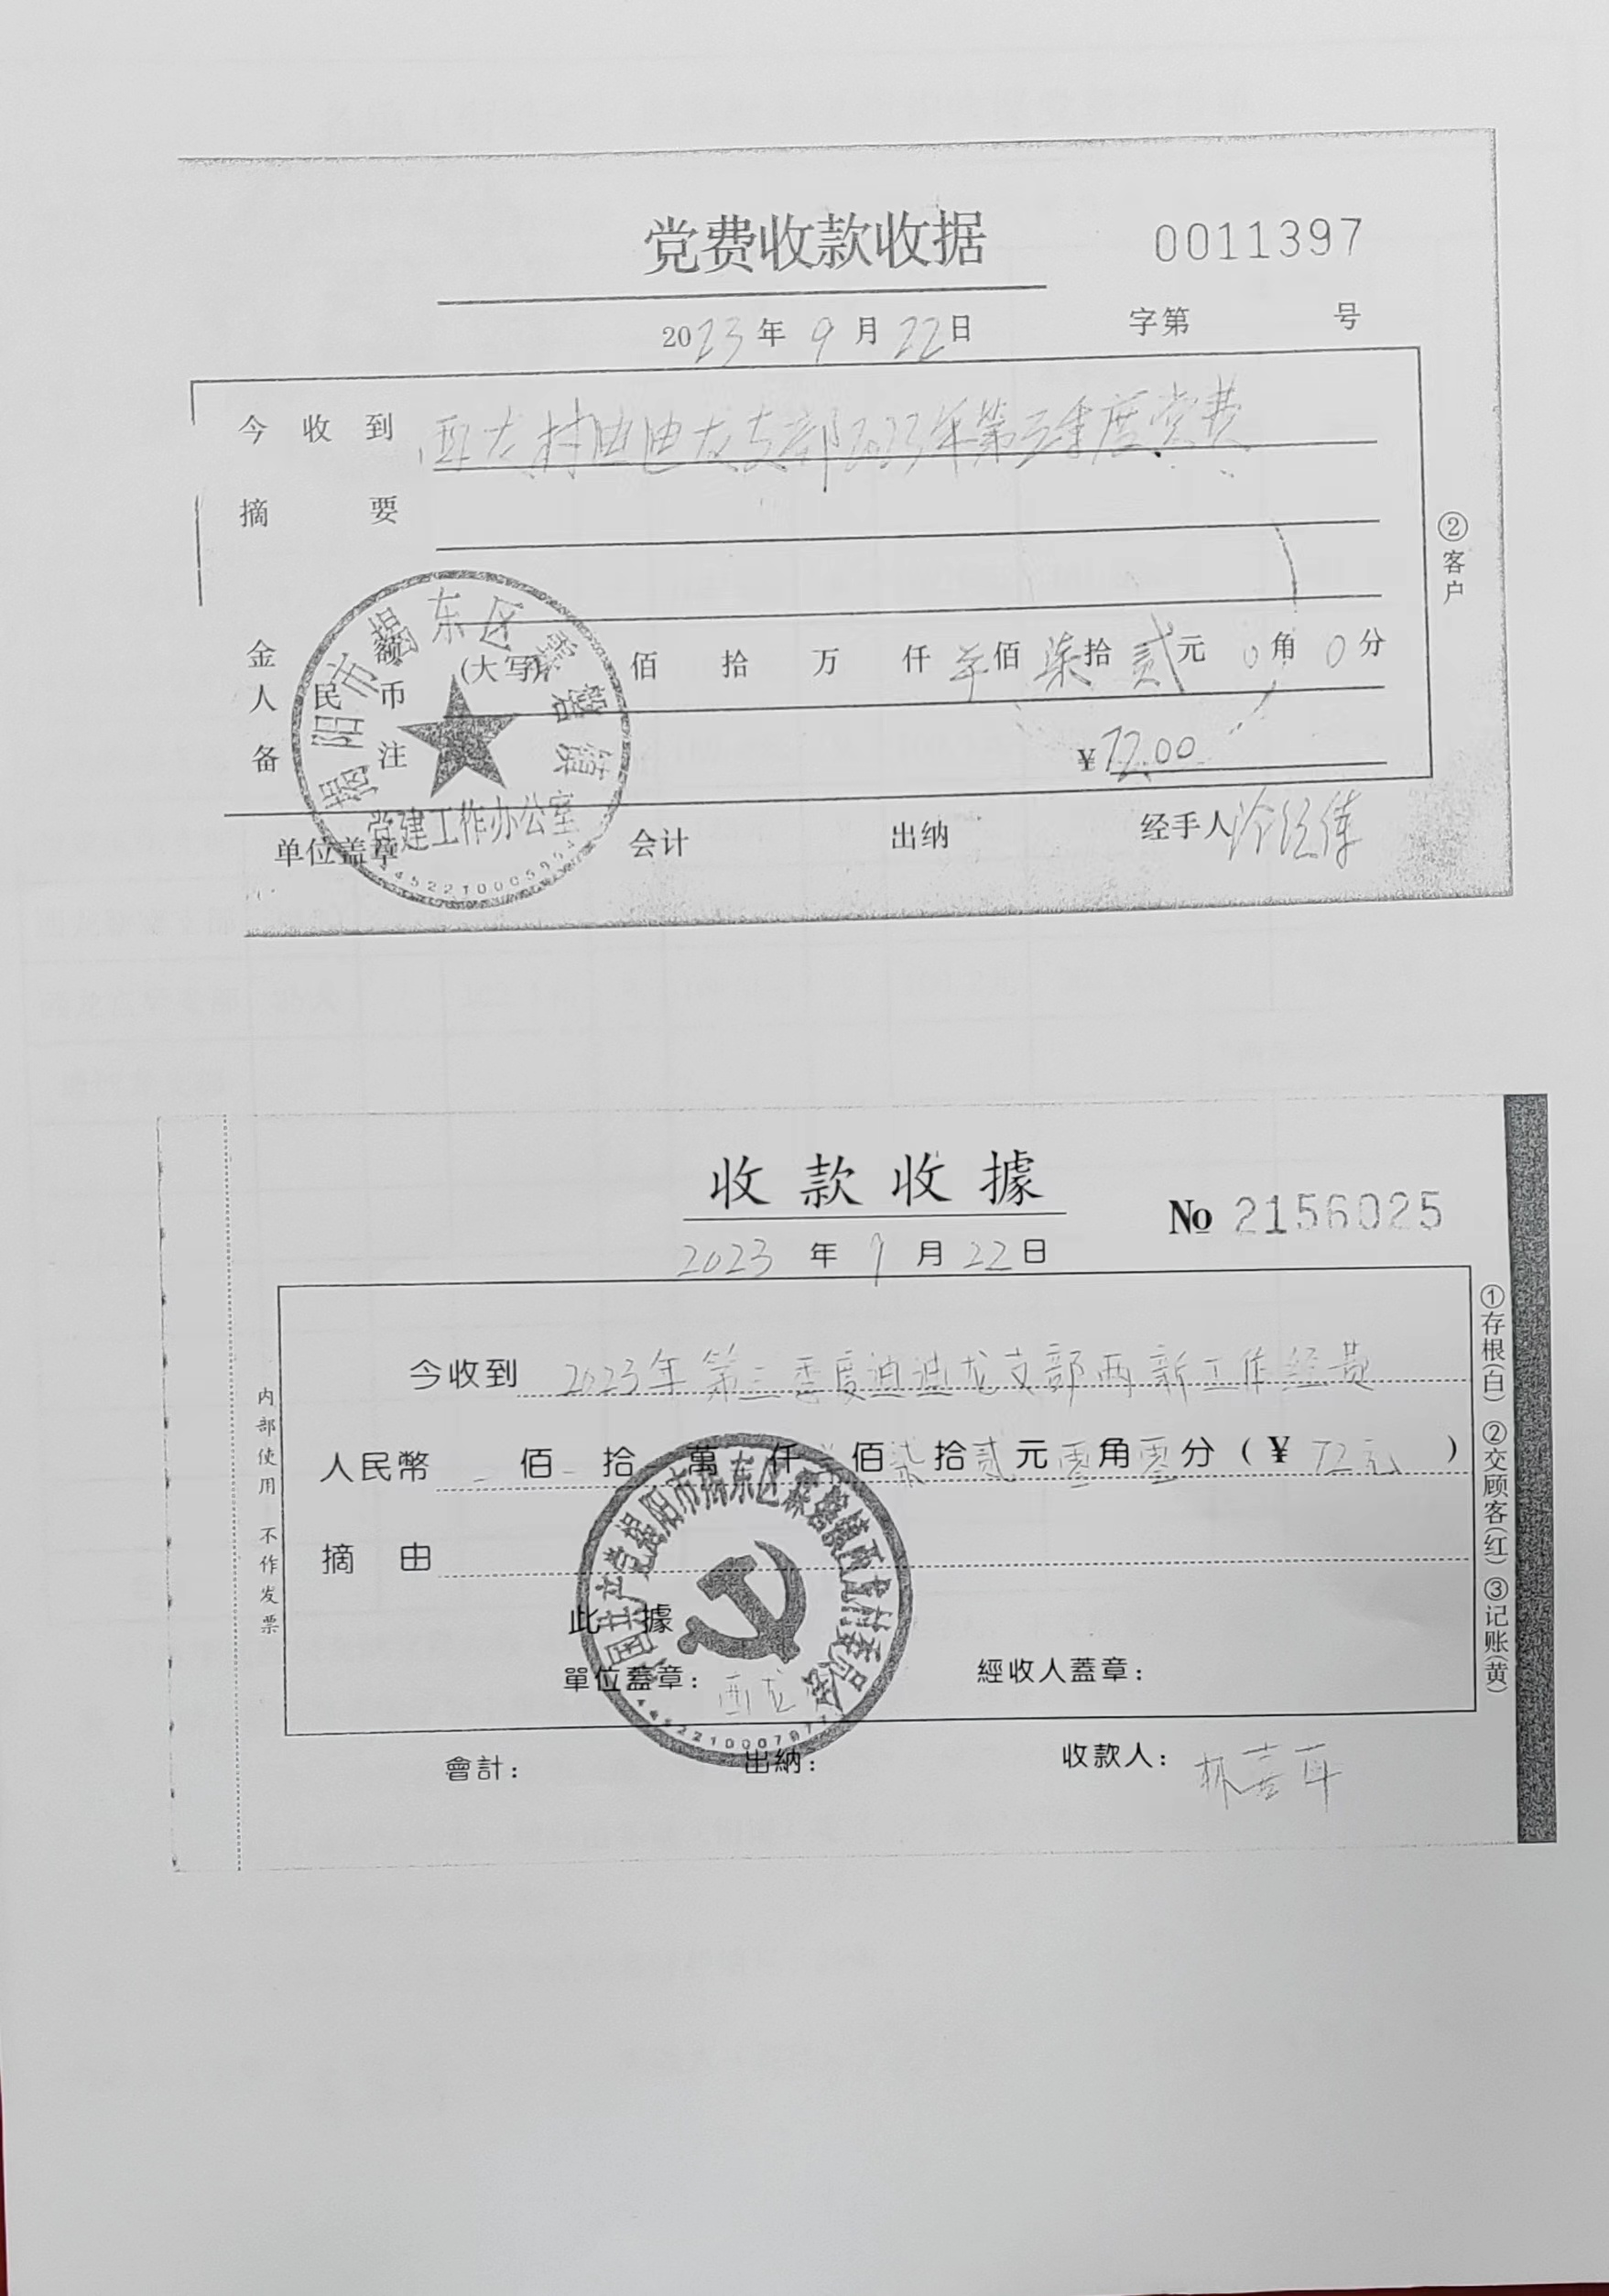 党费收款收据
0011397
2023年9月22日
字第 号
今收到 西龙村迪迪龙支部2023年第三季度党费
摘要
金额
人民币
(大写) 佰 拾 万 仟 佰 柒拾 贰元 0角 0分
备注
¥72.00
单位盖章 会计 出纳 经手人
②客户
揭阳市揭东区霖磐镇
党建工作办公室
收款收據
No 2156025
2023年9月22日
今收到 2023年第三季度迪迪龙支部两新工作经费
人民幣 佰 拾 萬 仟 佰 柒拾 贰元 零角 零分 (¥ 72元 )
摘由
此據
單位蓋章: 西龙
經收人蓋章:
會計: 出納: 收款人:
内部使用 不作发票
①存根(白) ②交顾客(红) ③记账(黄)
中国共产党揭阳市揭东区霖磐镇西龙村委员会